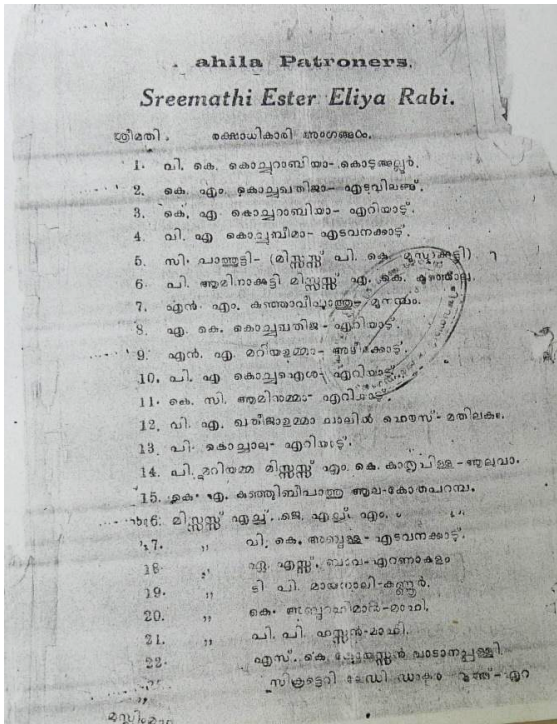 ahila Patroners.
Sreemathi Ester Eliya Rabi.
ശ്രീമതി. രക്ഷാധികാരി അംഗങ്ങൾ.
1. വി. കെ. കൊച്ചുറാബിയാ- കൊടുങ്ങല്ലൂർ.
2. കെ. എം. കൊച്ചുഖതിജാ- എടവിലങ്ങ്.
3. കെ. എ. കൊച്ചുറാബിയാ- എറിയാട്.
4. വി. എ കൊച്ചുബീമാ- എടവനക്കാട്.
5. സി. പാത്തുട്ടി- (മിസ്സസ്സ് പി. കെ. മൂസ്സക്കുട്ടി)
6. പി. ആമിനാക്കുട്ടി മിസ്സസ്സ് എ. കെ.
7. എൻ. എം. കുഞ്ഞാവീപാത്തു- മുനമ്പം.
8. എ. കെ. കൊച്ചുഖതിജ- എറിയാട്.
9. എൻ. എ. മറിയഉമ്മാ- അഴീക്കോട്.
10. പി. എ കൊച്ചുഐശ- എറിയാട്.
11. കെ. സി. ആമിനുമ്മാ- എറിയാട്.
12. വി. എ. ഖതീജാഉമ്മാ ചാലിൽ ഹൌസ്- മതിലകം.
13. പി. കൊച്ചാലു- എറിയാട്.
14. പി. മറിയമ്മ മിസ്സസ്സ് എം. കെ. കാതൃപിള്ള- ആലുവാ.
15. കെ. എ. കുഞ്ഞിബീപാത്തു ആല-കോതപറമ്പ.
16. മിസ്സസ്സ് എച്ച്. ജെ. എച്ച്. എം. ,,
17. ,, വി. കെ. അബ്ദുള്ള- എടവനക്കാട്.
18. ,, എ. എസ്സ്. ബാവ- എറണാകുളം
19. ,, ടി പി. മായനാലി-കണ്ണൂർ.
20. ,, കെ. മാഹി.
21. ,, പി. പി. ഹസ്സൻ-മാഹി.
22. എസ്. കെ. വാടാനപ്പള്ളി.
സിക്രട്ടെറി ലേഡി